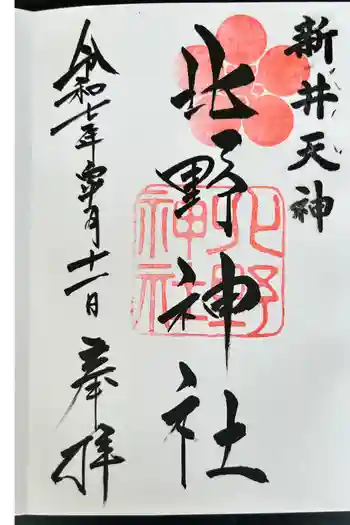 新井天神
北野神社
北野
神社
令和七年皐月十一日
奉拝